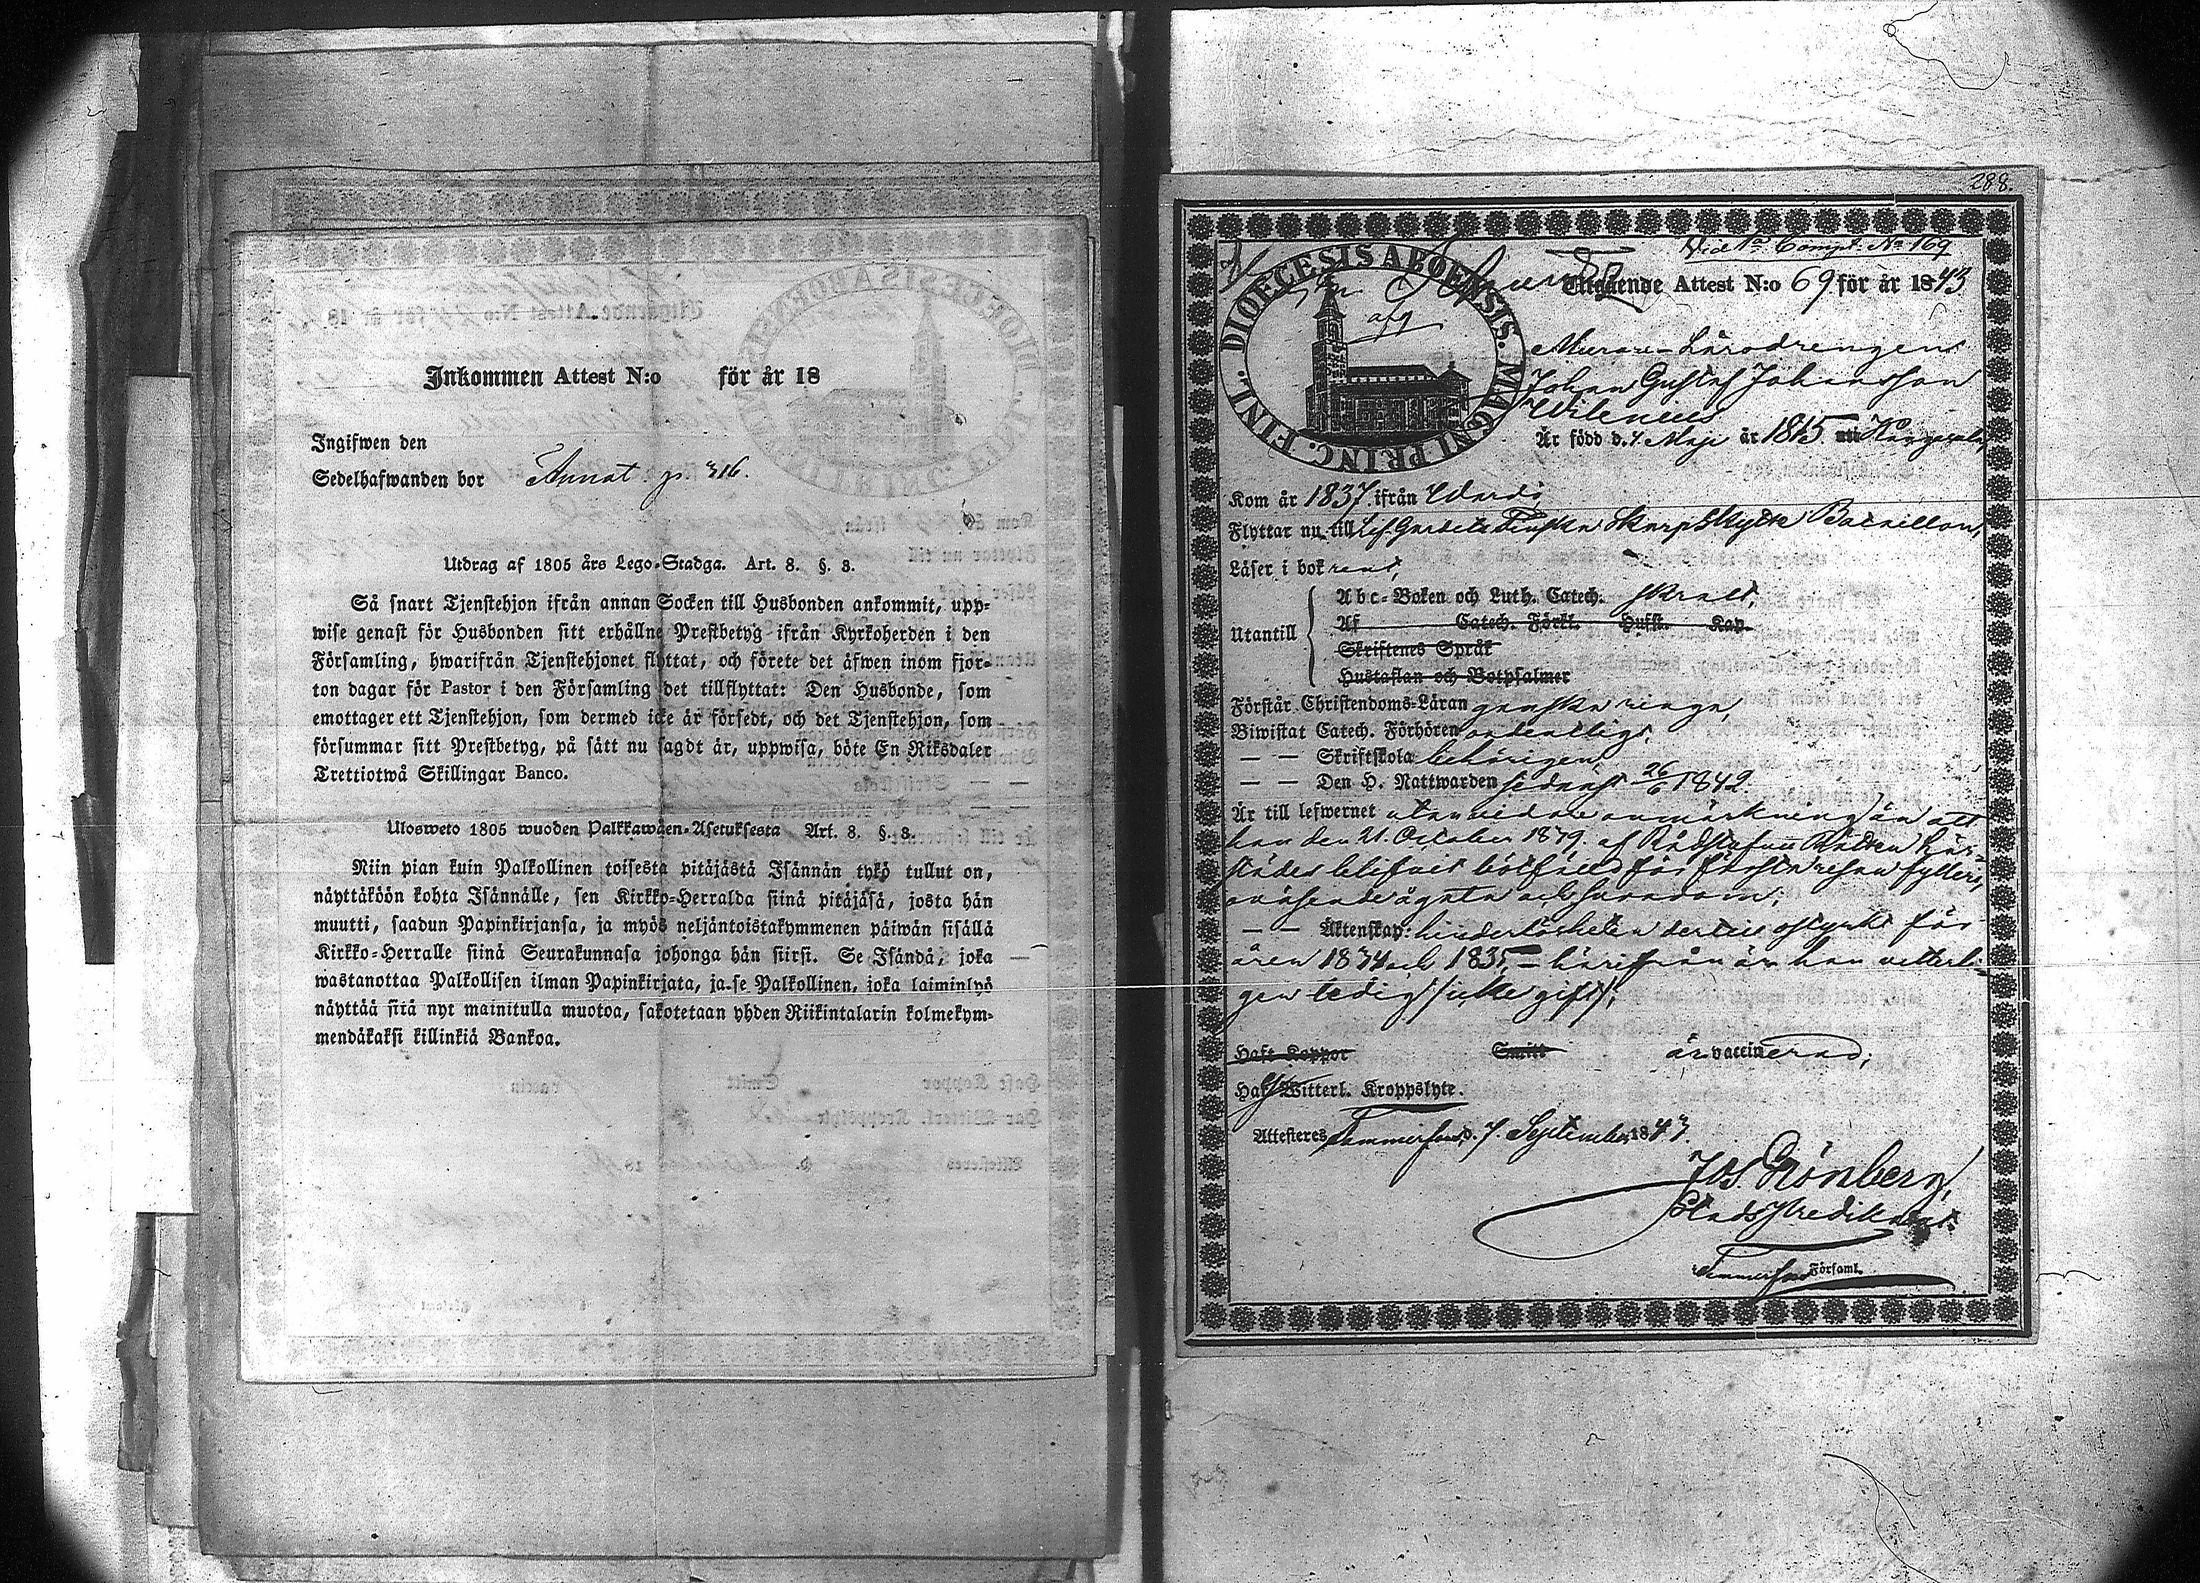 Inkommen Attest N:o för år 18
Ingifwen den
Sedelhafwanden bor Annat p. 316.
Utdrag af 1805 års Lego-Stadga. Art. 8. §. 3.
Så snart Tjenstehjon ifrån annan Socken till Husbonden ankommit, upp-
wise genast för Husbonden sitt erhållne Prestbetyg ifrån Kyrkoherden i den
Församling, hwarifrån Tjenstehjonet flyttat, och förete det äfwen inom fjor-
ton dagar för Pastor i den Församling det tillflyttat: Den Husbonde, som
emottager ett Tjenstehjon, som dermed icke är försedt, och det Tjenstehjon, som
försummar sitt Prestbetyg, på sätt nu sagdt är, uppwisa, böte En Riksdaler
Trettiotwå Skillingar Banco.
Ulosweto 1805 wuoden Palkkawäen-Asetuksesta Art. 8. §. 3.
Niin pian kuin Palkollinen toisesta pitäjästä Isännän tykö tullut on,
näyttäköön kohta Isännälle, sen Kirkko-Herralda siinä pitäjäsä, josta hän
muutti, saadun Papinkirjansa, ja myös neljäntoistakymmenen päiwän sisällä
Kirkko-Herralle siinä Seurakunnasa johonga hän siirsi. Se Isändä, joka
wastanottaa Palkollisen ilman Papinkirjata, ja se Palkollinen, joka laiminlyö
näyttää sitä nyt mainitulla muotoa, sakotetaan yhden Riikintalarin kolmekym-
mendäkaksi killinkiä Bankoa.
288.
Vid 1a Comp. No 169
DIOECESIS ABOENSIS. MAGNI PRINC. FINL.
Utgående Attest N:o 69 för år 1843
afg
Murare-Lärodrengen
Johan Gustaf Johansson
Wilenius
Är född d. 4 Maji år 1815 uti Kangasala,
Kom år 1837 ifrån Wårdö
Flyttar nu till Lif-Gardets Finska Skarpskytte Bataillon,
Läser i bok rent,
Utantill
Abc-Boken och Luth. Catech.
Af Catech. Förkl. Hufst. Kap.
Skriftenes Språk
Hustaflan och Botpsalmer
Förstår Christendoms-Läran ganska ringa,
Biwistat Catech. Förhören ordentligt,
— — Skriftskola behörigen,
— — Den H. Nattwarden sednast 26/6 1842.
Är till lefwernet utan widare anmärkning än att
han den 21. October 1839. af Rådstufvu Rätten här-
städes blifvit bötfälld för första resan fylleri,
oväsende
— — Äktenskap: hinderlösheten dertill styrkt för
åren 1834 och 1835, — härifrån är han vitterli-
gen ledig (icke gift);
Haft Koppor Smitt är vaccinerad;
Haf Witterl. Kroppslyte.
Attesteres Tammerfors d. 7. September 1843.
Jos Grönberg,
Stads Predikant.
i Tammerfors Församl.